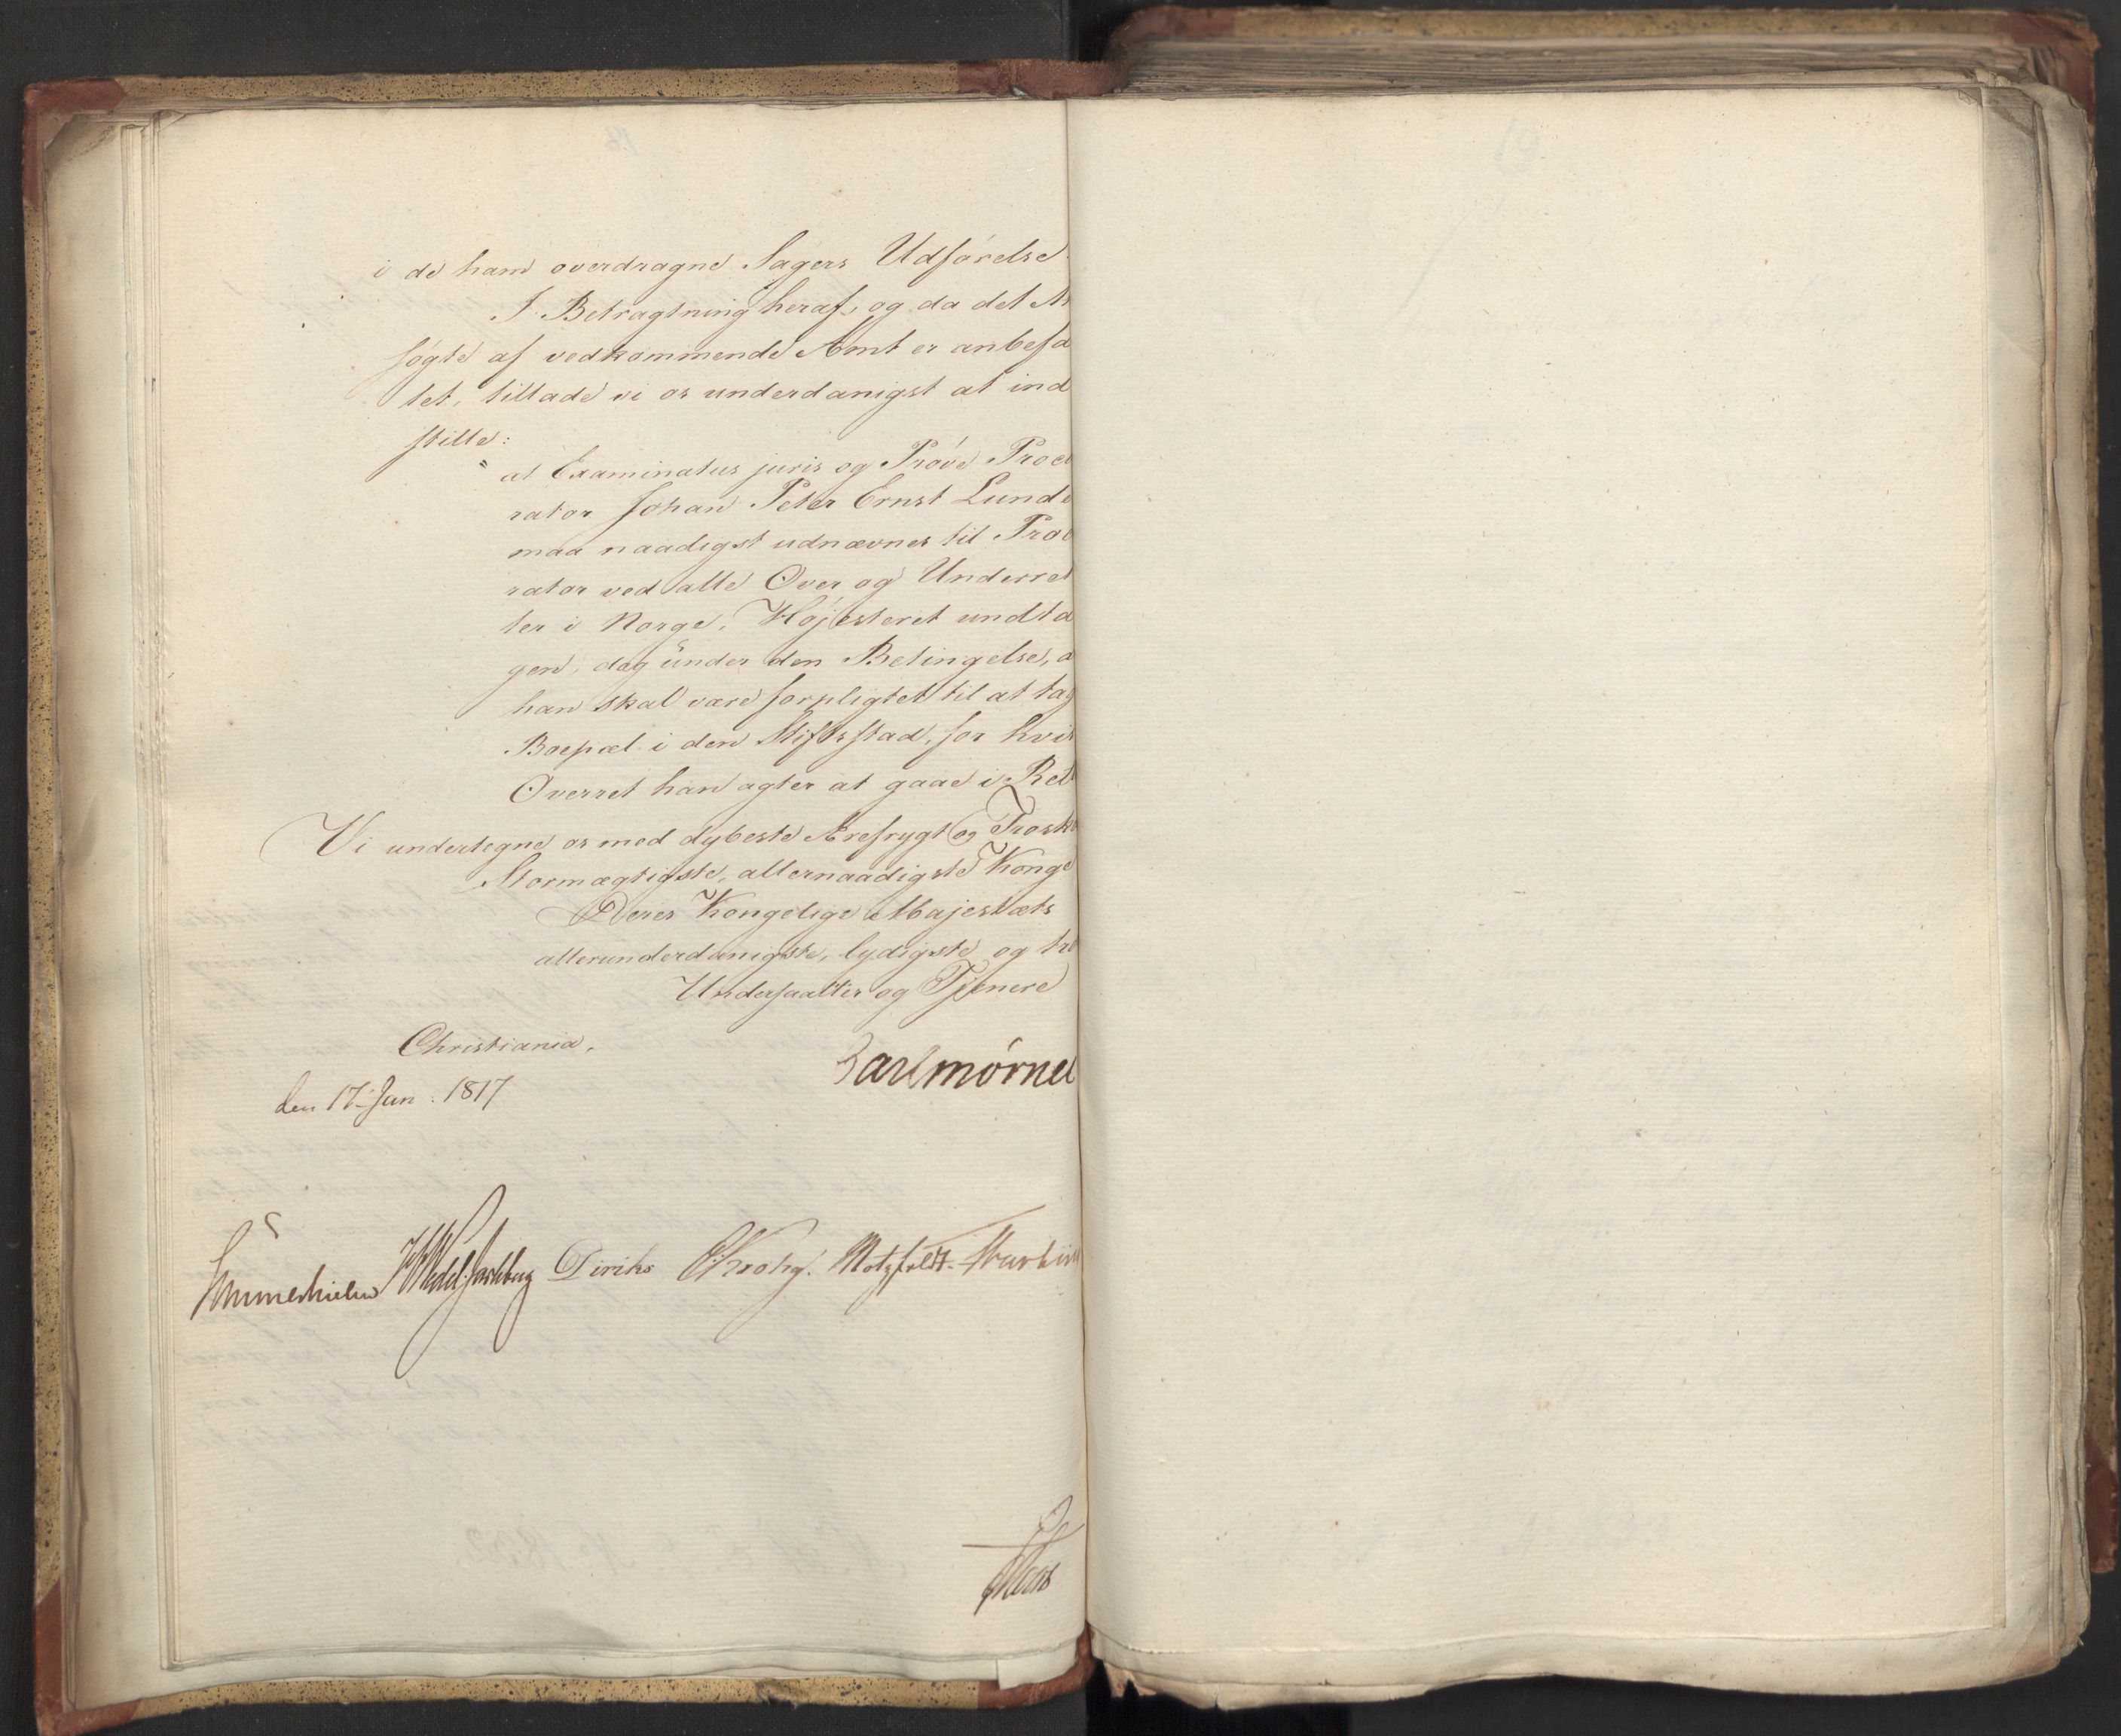 i de ham overdragne Sagers Udførelse.
I Betragtning heraf, og da det An
søgte af vedkommende Amt er anbefa
let, tillade vi os underdanigst at ind
stille:
at Examinatus juris og Prøve Procu
rator Johan Peter Ernst Lund
maa naadigst udnævnes til Procu
rator ved alle Over og Underret
ter i Norge, Højesteret undta
gen, dog under den Betingelse, a
han skal være forpligtet til at tag
Boepæl i den Stiftsstad, for hvis
Overret han agter at gaae i Rett
Vi undertegne os med dybeste Ærefrygt og Trosk
Stormægtigste, allernaadigste Konge
Deres Kongelige Majestæts
allerunderdanigste, lydigste og tro
Undersaatter og Tjenere
Christiania,
den 17 Jun. 1817
Carl Mörner
Sommerhielm Wedel Jarlsberg Diriks CKrohg. Motzfeldt.